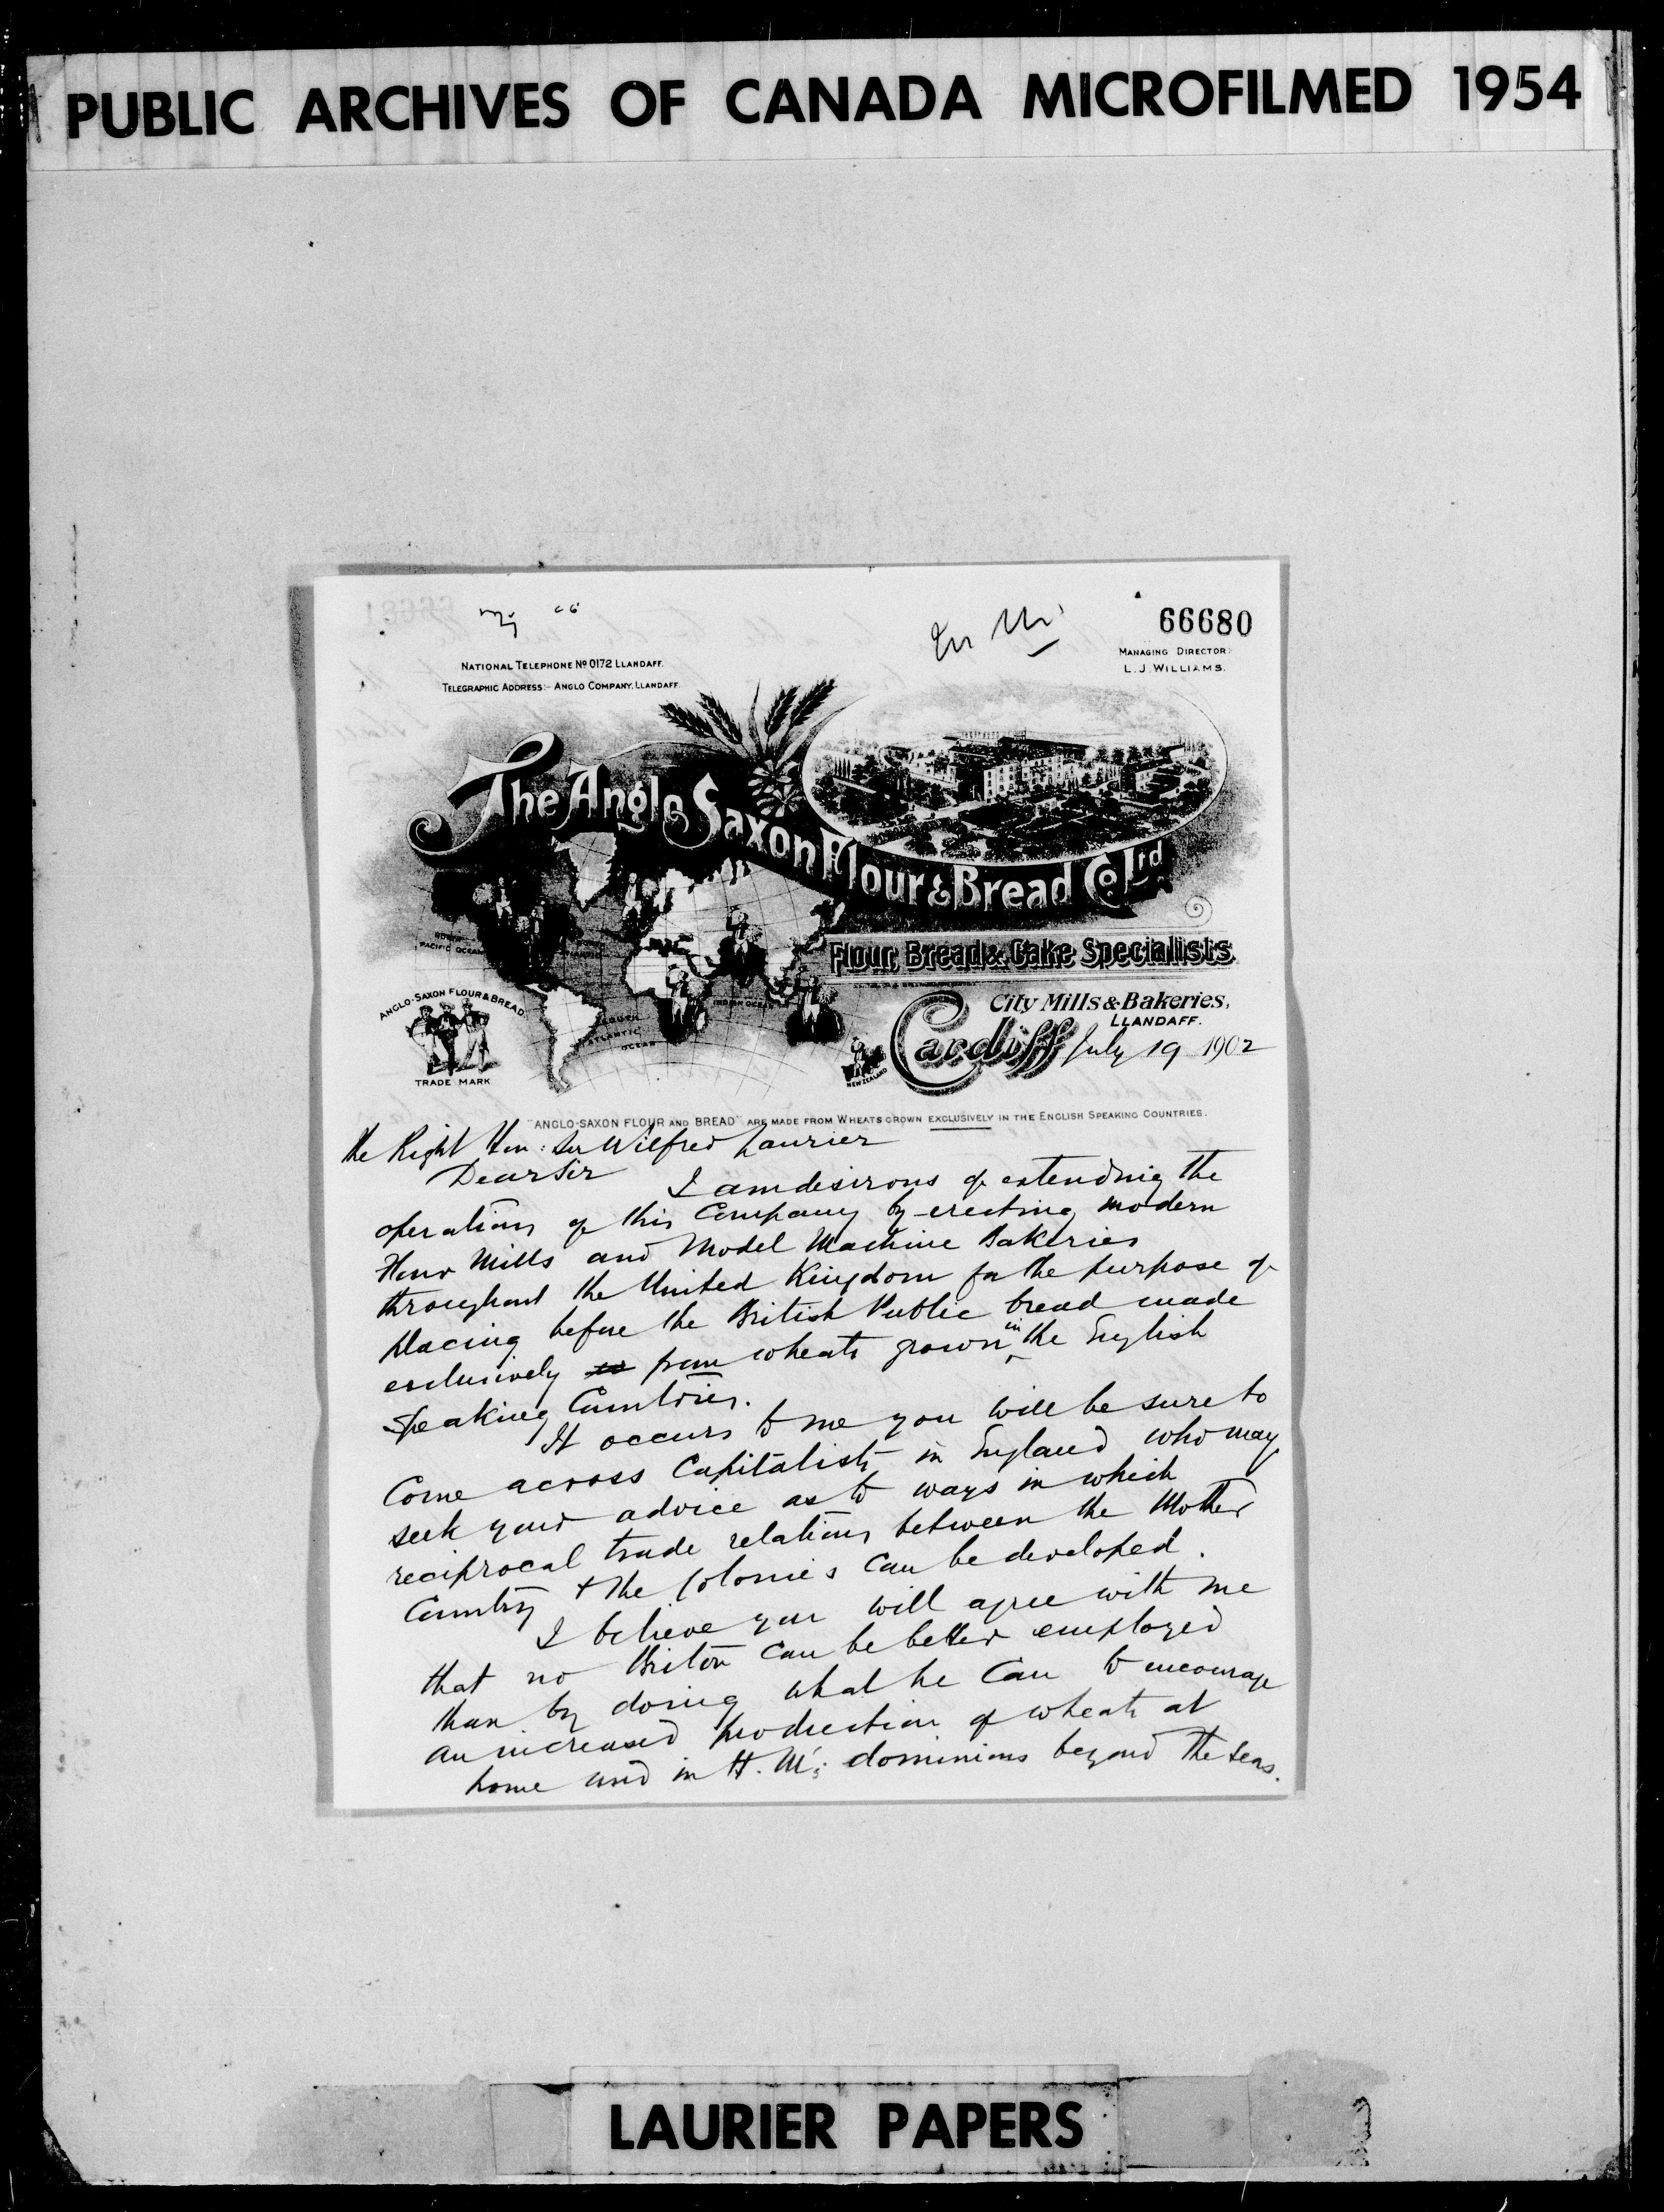 PUBLIC ARCHIVES OF CANADA MICROFILMED 1954
66680
MANAGING DIRECTOR:
L. J. WILLIAMS.
NATIONAL TELEPHONE No 0172 LLANDAFF.
TELEGRAPHIC ADDRESS:- ANGLO COMPANY, LLANDAFF.
The Anglo Saxon Flour & Bread Co Ltd
Flour, Bread & Cake Specialists
NORTH PACIFIC OCEAN
INDIAN OCEAN
SOUTH ATLANTIC OCEAN
NEW ZEALAND
ANGLO-SAXON FLOUR & BREAD
TRADE MARK
City Mills & Bakeries,
LLANDAFF.
Cardiff July 19 1902
"ANGLO-SAXON FLOUR AND BREAD" ARE MADE FROM WHEATS GROWN EXCLUSIVELY IN THE ENGLISH SPEAKING COUNTRIES.
the Right Hon: Sir Wilfred Laurier
Dear Sir I am desirous of extending the
operations of this Company by erecting modern
Flour Mills and Model Machine Bakeries
throughout the United Kingdom for the purpose of
placing before the British Public bread made
exclusively from wheats grown in the English
Speaking Countries.
It occurs to me you will be sure to
Come across Capitalists in England who may
seek your advice as to ways in which
reciprocal trade relations between the Mother
Country & the Colonies can be developed.
I believe you will agree with me
that no Briton can be better employed
than by doing what he can to encourage
an increased production of wheats at
home and in H. M's dominions beyond the Seas.
LAURIER PAPERS